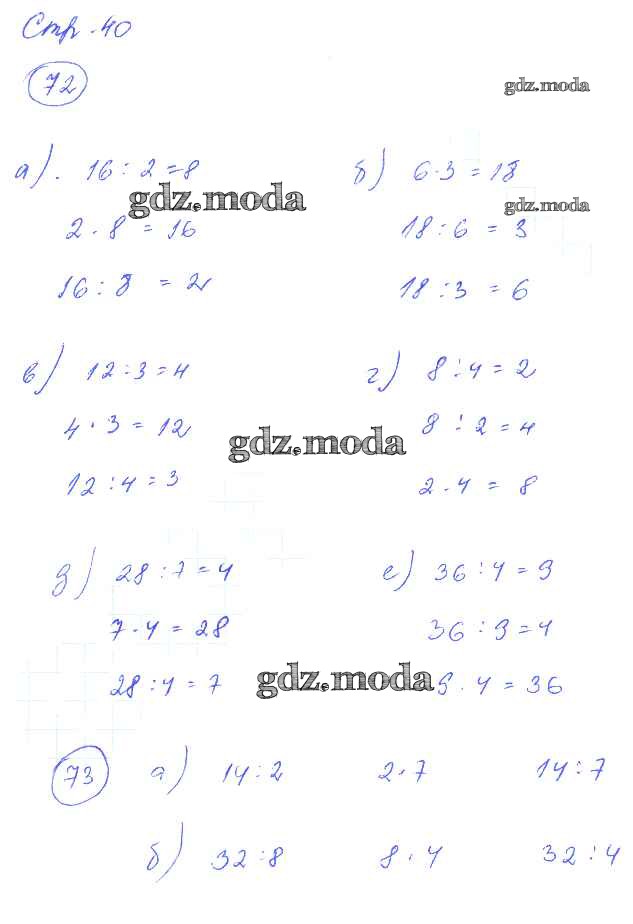 Стр. 40
72
gdz.moda
а). 16 : 2 = 8
б) 6 · 3 = 18
gdz.moda
gdz.moda
2 · 8 = 16
18 : 6 = 3
16 : 8 = 2
18 : 3 = 6
в) 12 : 3 = 4
г) 8 : 4 = 2
4 · 3 = 12
8 : 2 = 4
gdz.moda
12 : 4 = 3
2 · 4 = 8
д) 28 : 7 = 4
е) 36 : 4 = 9
7 · 4 = 28
36 : 9 = 4
28 : 4 = 7
gdz.moda
9 · 4 = 36
73 а) 14 : 2 2 · 7 14 : 7
б) 32 : 8 8 · 4 32 : 4